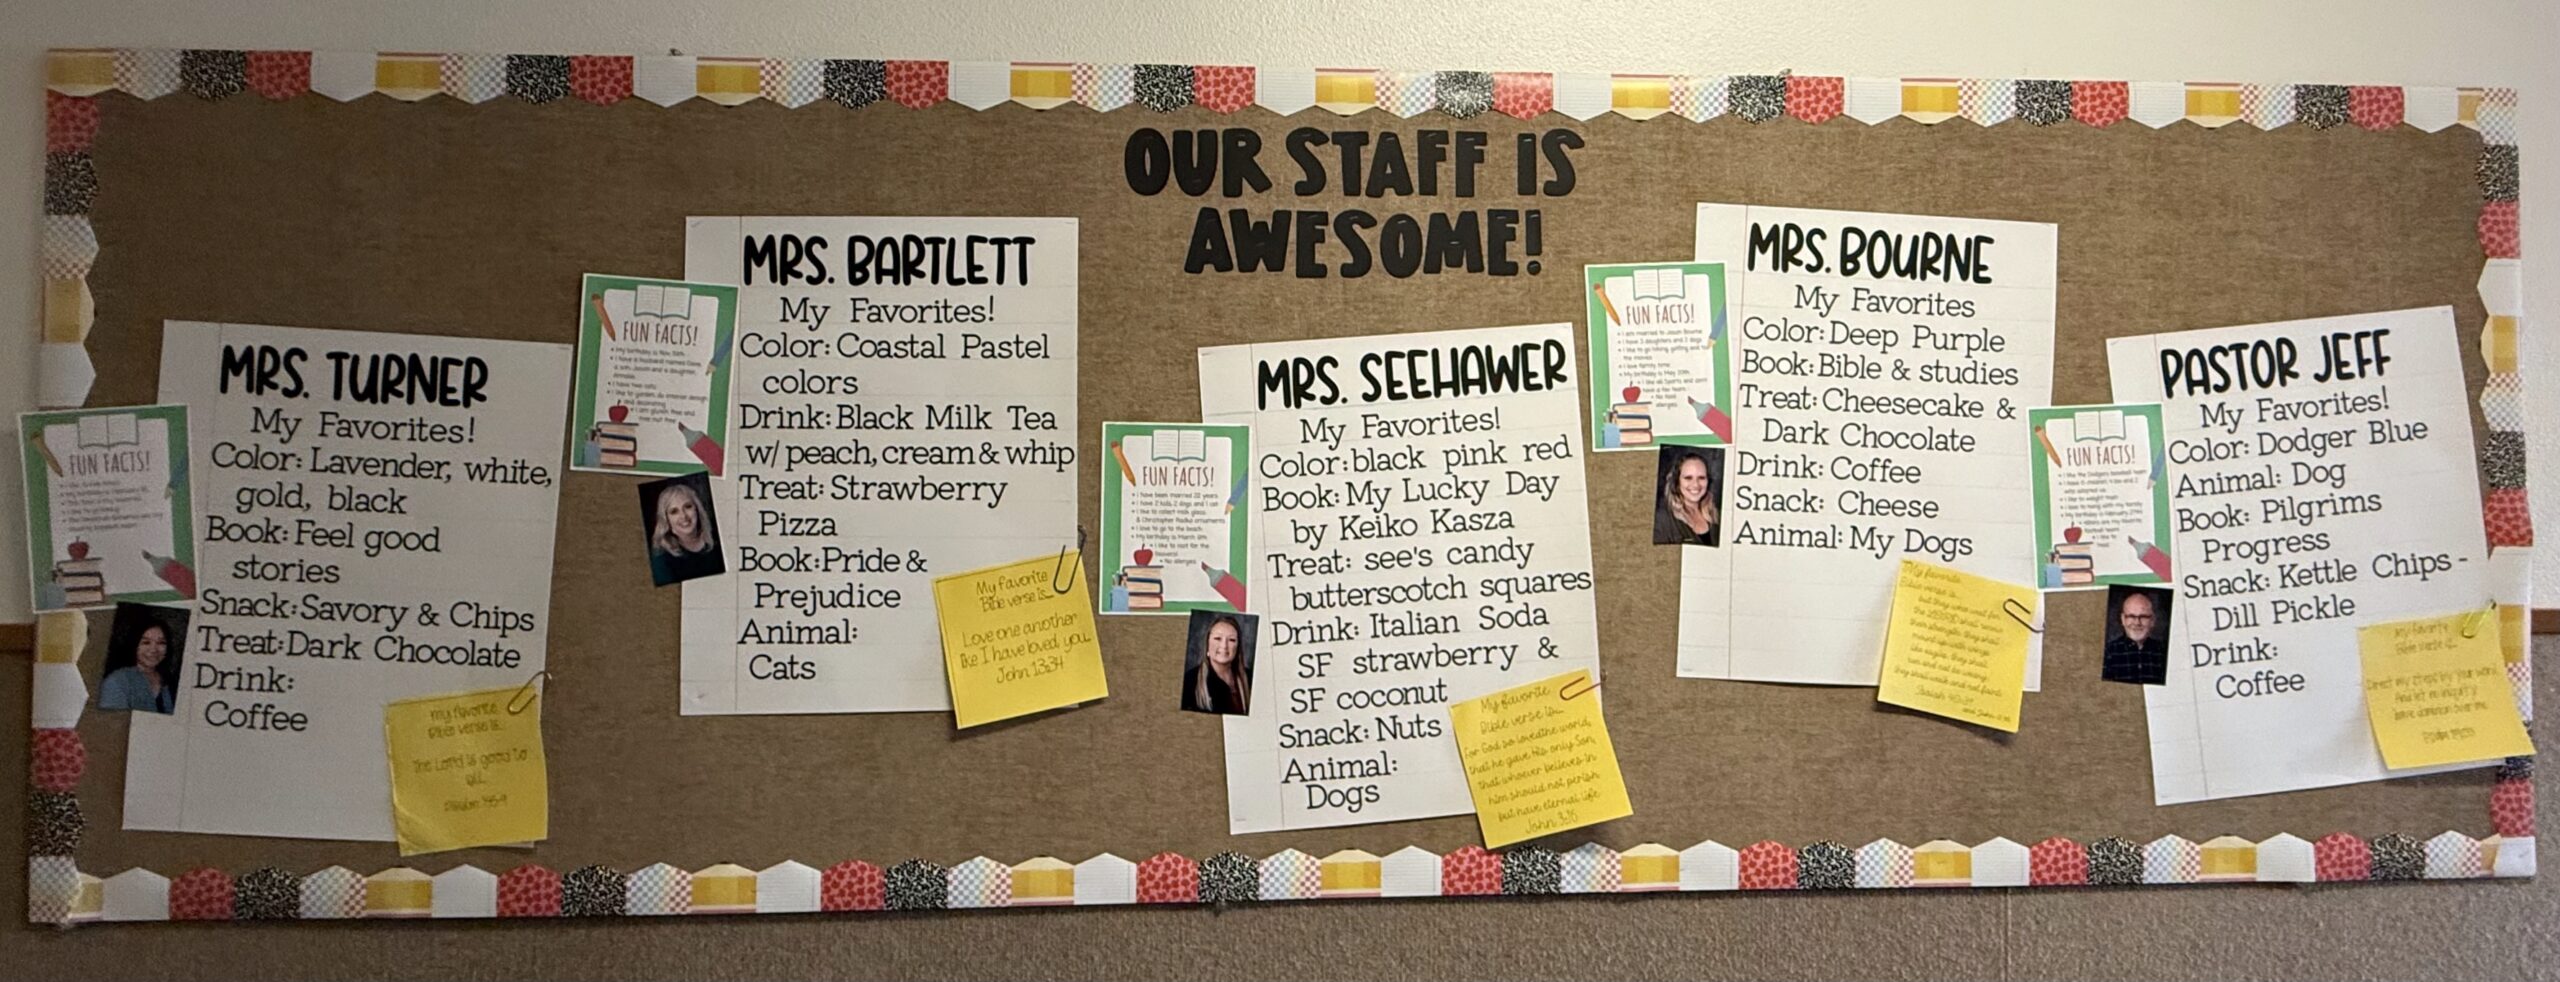 OUR STAFF IS
AWESOME!
MRS. TURNER
My Favorites!
Color: Lavender, white,
gold, black
Book: Feel good
stories
Snack: Savory & Chips
Treat: Dark Chocolate
Drink:
Coffee
FUN FACTS!
my favorite
Bible verse is...
The Lord is good to
all.
Psalm 145:9
MRS. BARTLETT
My Favorites!
Color: Coastal Pastel
colors
Drink: Black Milk Tea
w/ peach, cream & whip
Treat: Strawberry
Pizza
Book: Pride &
Prejudice
Animal:
Cats
FUN FACTS!
• I have two cats
My favorite
Bible verse is...
Love one another
like I have loved you.
John 13:34
MRS. SEEHAWER
My Favorites!
Color: black pink red
Book: My Lucky Day
by Keiko Kasza
Treat: see's candy
butterscotch squares
Drink: Italian Soda
SF strawberry &
SF coconut
Snack: Nuts
Animal:
Dogs
FUN FACTS!
• I have been married 22 years
• I have 2 kids, 2 dogs and 1 cat
• I like to collect milk glass
& Christopher Radko ornaments
• I love to go to the beach
• My birthday is March 8th
• I like to root for the
• No allergies
My favorite
Bible verse is...
For God so loved the world,
that he gave his only Son,
that whoever believes in
him should not perish
but have eternal life.
John 3:16
MRS. BOURNE
My Favorites
Color: Deep Purple
Book: Bible & studies
Treat: Cheesecake &
Dark Chocolate
Drink: Coffee
Snack: Cheese
Animal: My Dogs
FUN FACTS!
• I am married to Jason Bourne
• I have 3 daughters and 2 dogs
• I like to go hiking, golfing and to
the movies
• I love family time
• My birthday is May 20th
• No food
allergies
My favorite
Bible verse is...
but they who wait for
the LORD shall renew
their strength; they shall
mount up with wings
like eagles; they shall
run and not be weary;
they shall walk and not faint.
Isaiah 40:31
PASTOR JEFF
My Favorites!
Color: Dodger Blue
Animal: Dog
Book: Pilgrims
Progress
Snack: Kettle Chips -
Dill Pickle
Drink:
Coffee
FUN FACTS!
• I like the Dodgers baseball team
My favorite
Bible verse is...
Direct my steps by your word
And let no iniquity
have dominion over me.